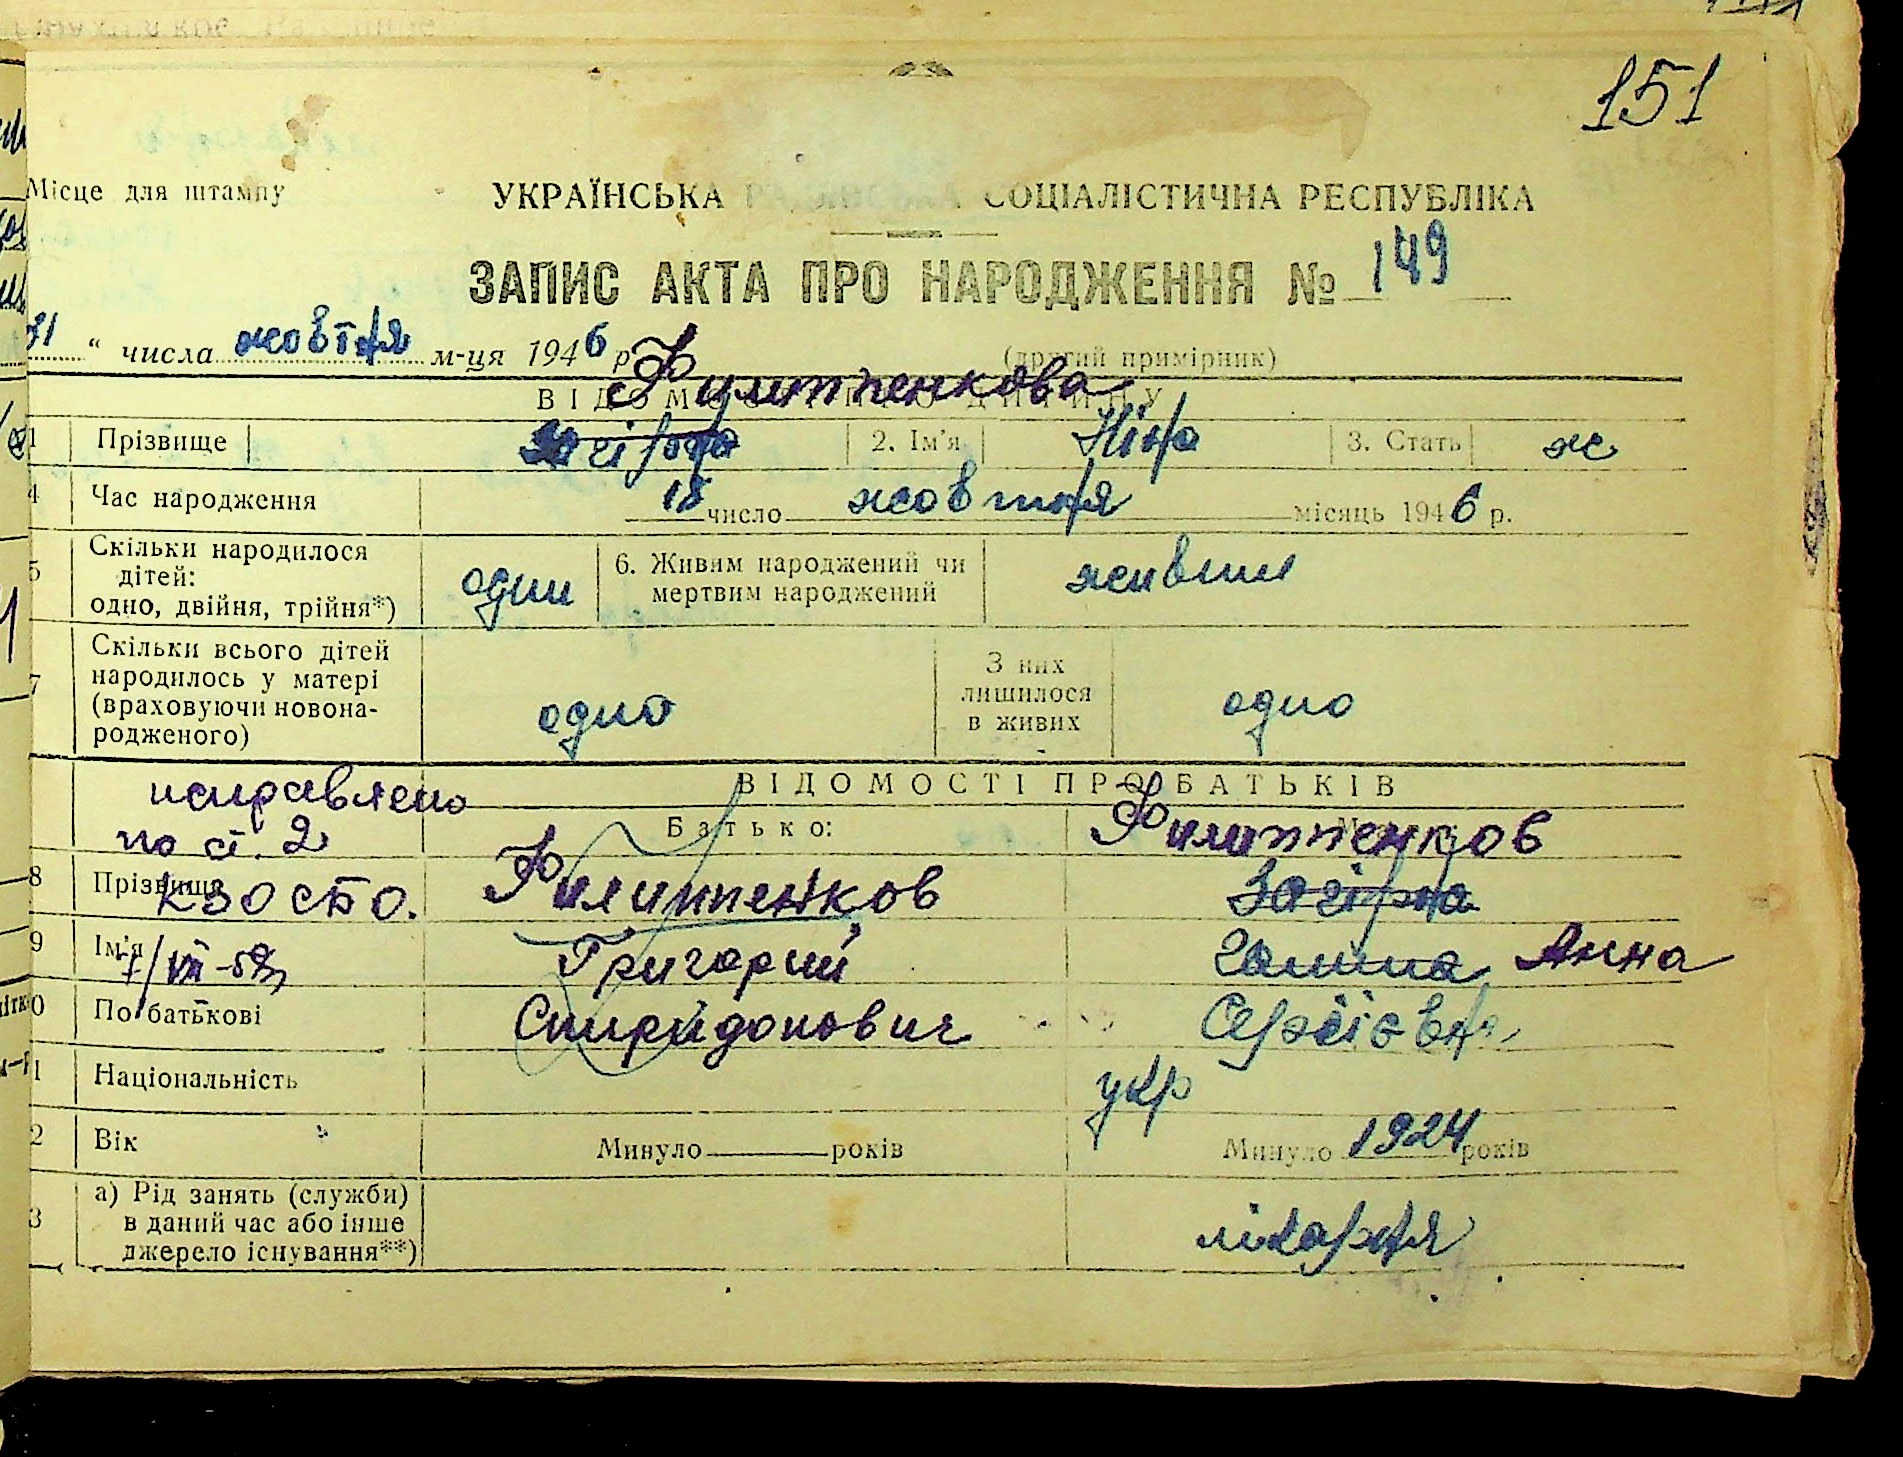 151
Місце для штампу
УКРАЇНСЬКА РАДЯНСЬКА СОЦІАЛІСТИЧНА РЕСПУБЛІКА
ЗАПИС АКТА ПРО НАРОДЖЕННЯ № 149
31 " числа жовтня м-ця 1946 р. (другий примірник)
Филиппенкова
ВІДОМОСТІ ПРО ДИТИНУ
1 Прізвище Загірна 2. Ім'я Ніна 3. Стать ж
4 Час народження 18 число жовтня місяць 1946 р.
5 Скільки народилося дітей: одно, двійня, трійня*) один 6. Живим народжений чи мертвим народжений живим
7 Скільки всього дітей народилось у матері (враховуючи новонародженого) одно З них лишилося в живих одно
ВІДОМОСТІ ПРО БАТЬКІВ
исправлено
по ст. 2
КЗОСБО.
7/VII-59
Батько:
Филиппенков
8 Прізвище Филиппенков Загірна
9 Ім'я Григорий Галина Анна
0 По батькові Спиридонович Сергіївна
1 Національність укр
2 Вік Минуло років Минуло 1924 років
3 а) Рід занять (служби) в даний час або інше джерело існування**) лікарня